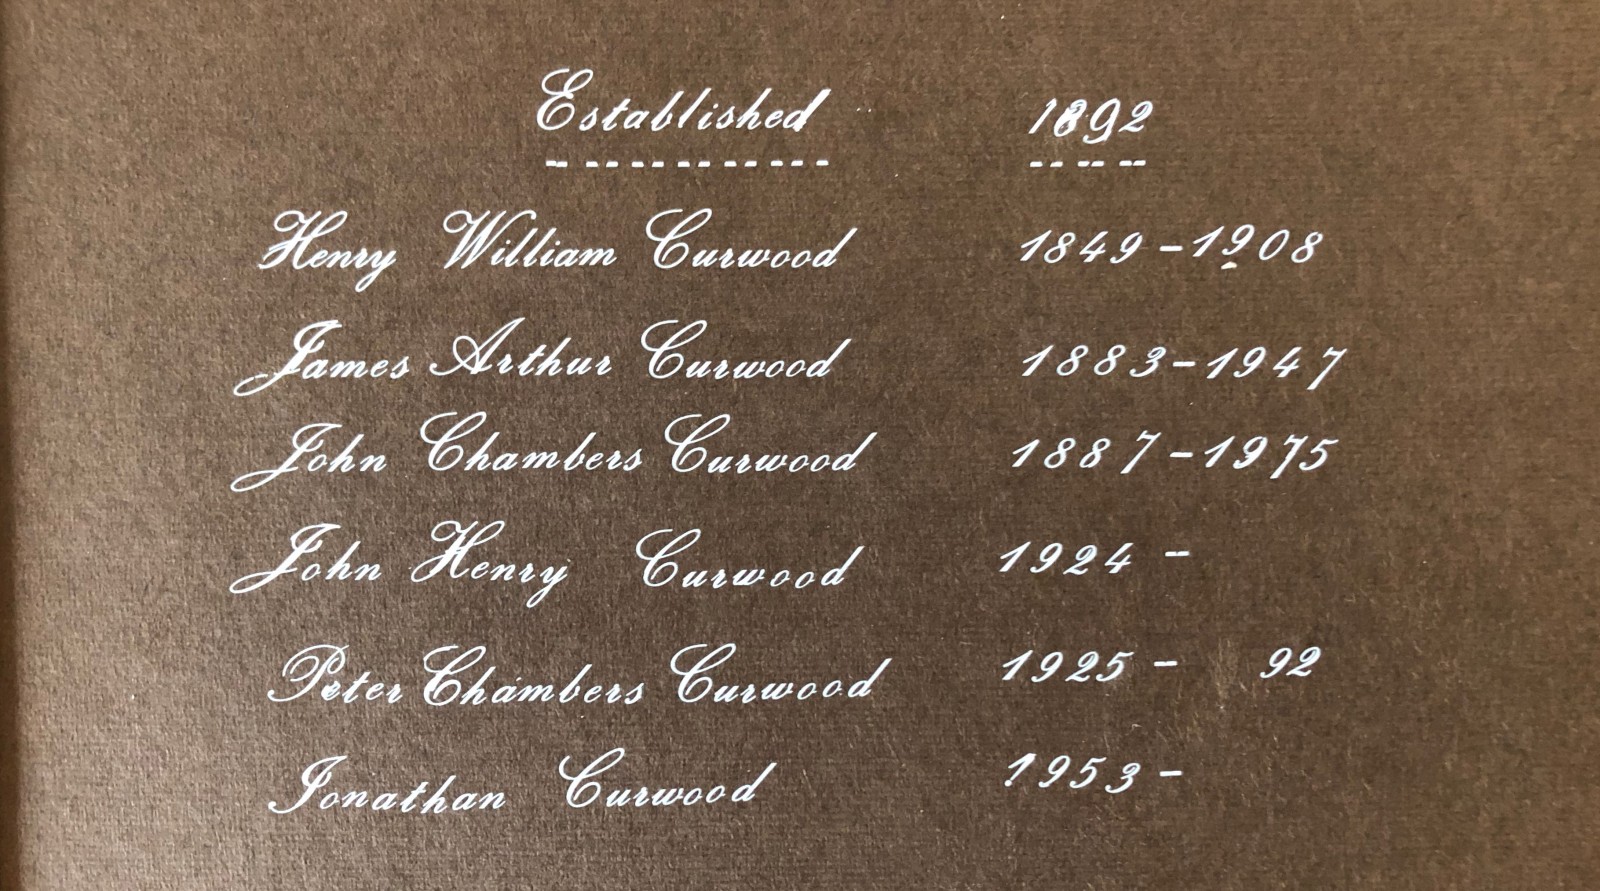 Established 1892
Henry William Curwood 1849-1908
James Arthur Curwood 1883-1947
John Chambers Curwood 1887-1975
John Henry Curwood 1924-
Peter Chambers Curwood 1925- 92
Jonathan Curwood 1953-